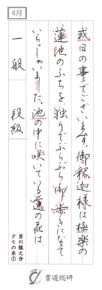 4月
或日の事でございます。御釈迦様は極楽の
蓮池のふちを独りでぶらぶら御歩きになって
いらっしゃいました。池の中に咲いている蓮の花は
一般 段級
芥川龍之介
クモの糸①
書道総研